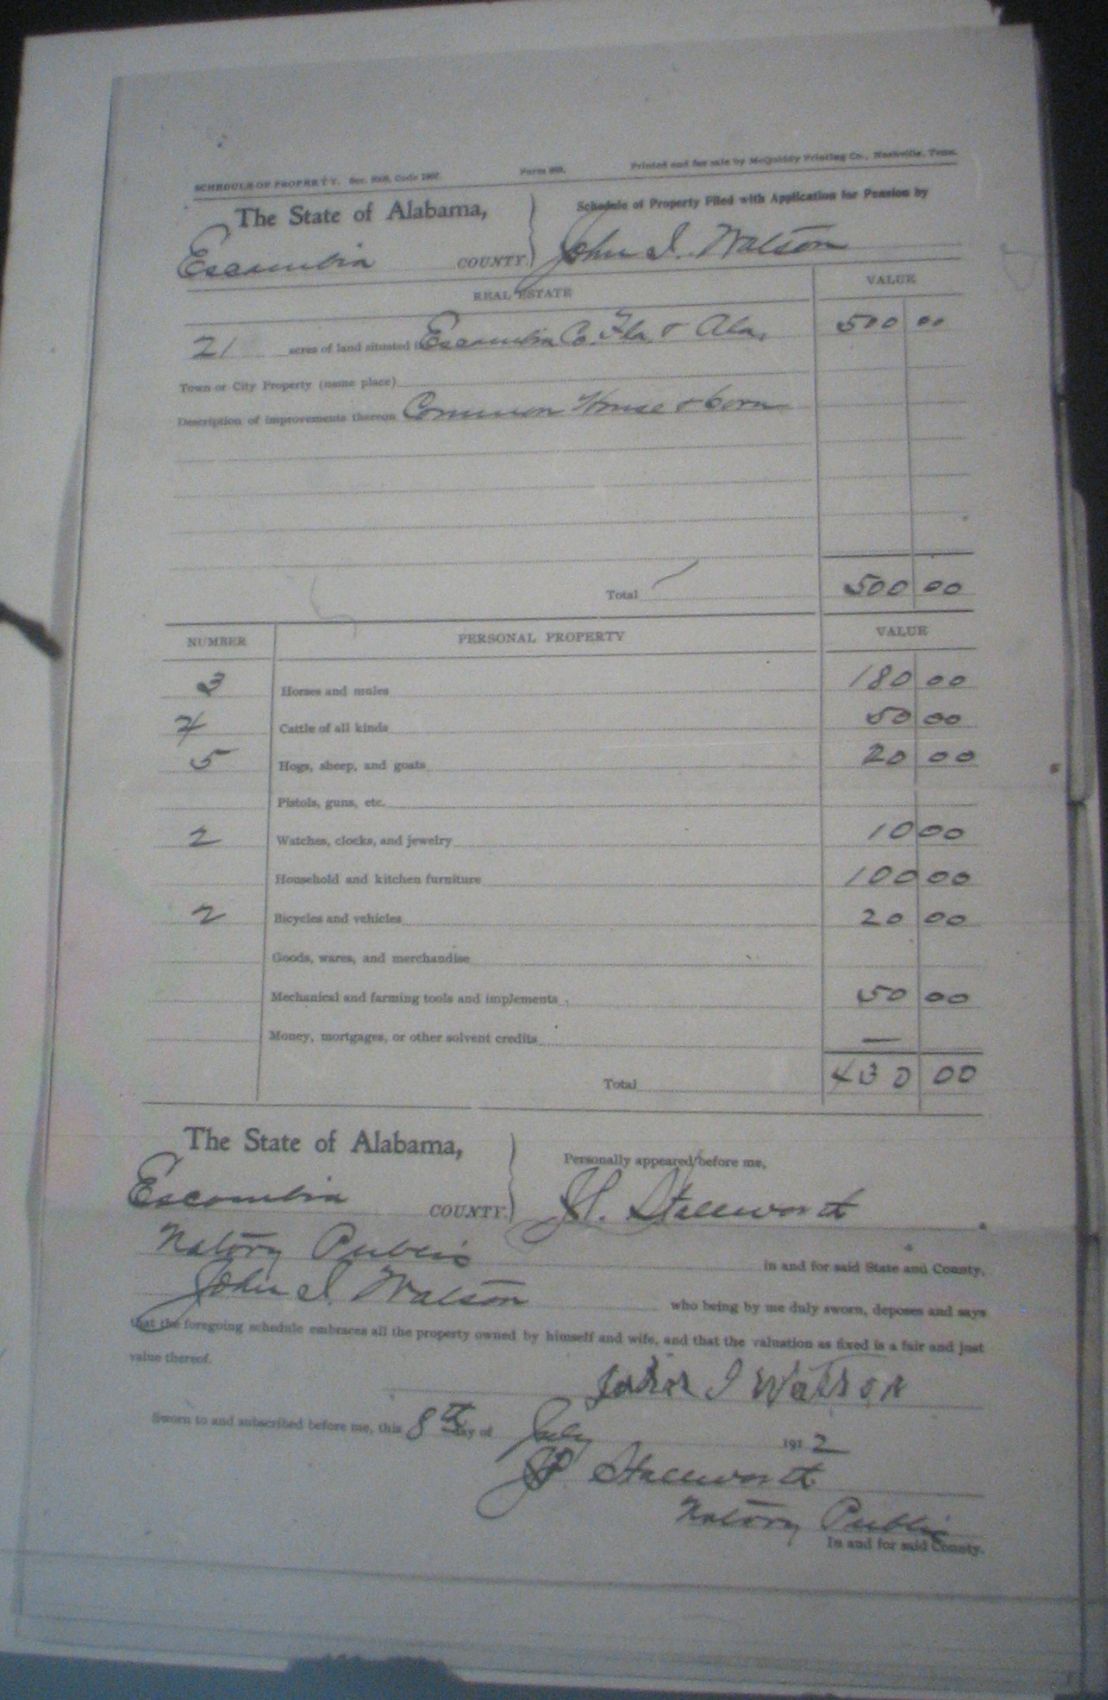 SCHEDULE OF PROPERTY. Sec. Code 1907. Form Printed and for sale by McQuiddy Printing Co., Nashville, Tenn.
The State of Alabama, Schedule of Property Filed with Application for Pension by
Escambia COUNTY. John I. Watson
REAL ESTATE VALUE
21 acres of land situated in Escambia Co. Fla & Ala. 500 00
Town or City Property (name place)
Description of improvements thereon Common House &
Total 500 00
NUMBER PERSONAL PROPERTY VALUE
3 Horses and mules 180 00
4 Cattle of all kinds 50 00
5 Hogs, sheep, and goats 20 00
Pistols, guns, etc.
2 Watches, clocks, and jewelry 10 00
Household and kitchen furniture 100 00
2 Bicycles and vehicles 20 00
Goods, wares, and merchandise
Mechanical and farming tools and implements 50 00
Money, mortgages, or other solvent credits —
Total 430 00
The State of Alabama, Personally appeared before me,
Escambia COUNTY. Stallworth
Notory Public in and for said State and County,
John I. Watson who being by me duly sworn, deposes and says
that the foregoing schedule embraces all the property owned by himself and wife, and that the valuation as fixed is a fair and just
value thereof.
John I Watson
Sworn to and subscribed before me, this 8th day of July 1912
Stallworth
Notory Public
In and for said County.